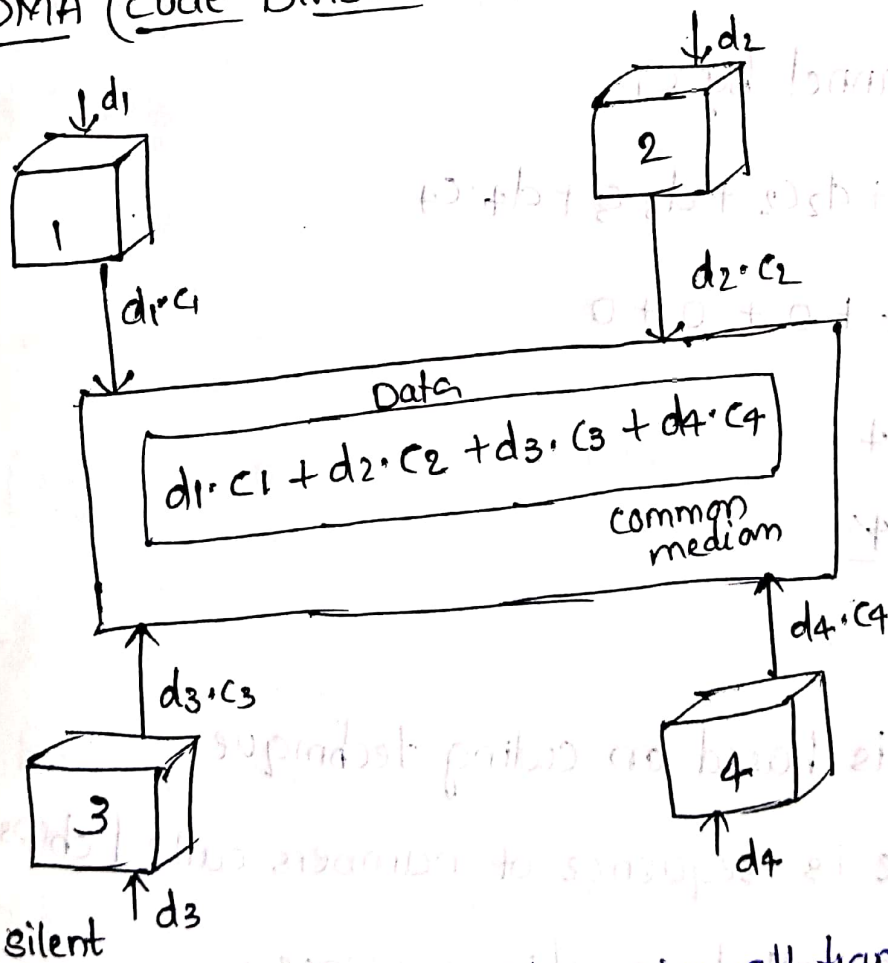 DMA (Code
d1
d2
1
2
d1.c1
d2.c2
Data
d1.c1 + d2.c2 + d3.c3 + d4.c4
common
median
d3.c3
d4.c4
3
4
d3
d4
silent